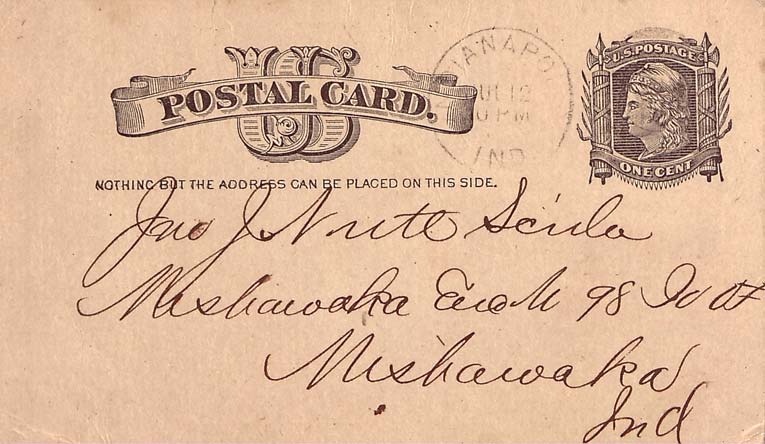 US
POSTAL CARD.
U.S. POSTAGE
ONE CENT
IANAPO
12
PM
IND
NOTHING BUT THE ADDRESS CAN BE PLACED ON THIS SIDE.
Jno J
Mishawaka 98
Mishawaka
Ind